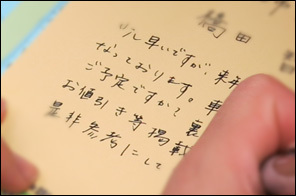 田
少し早いですが、来年
なっております。車
ご予定ですか？裏
お値引き等掲載
是非参考にして